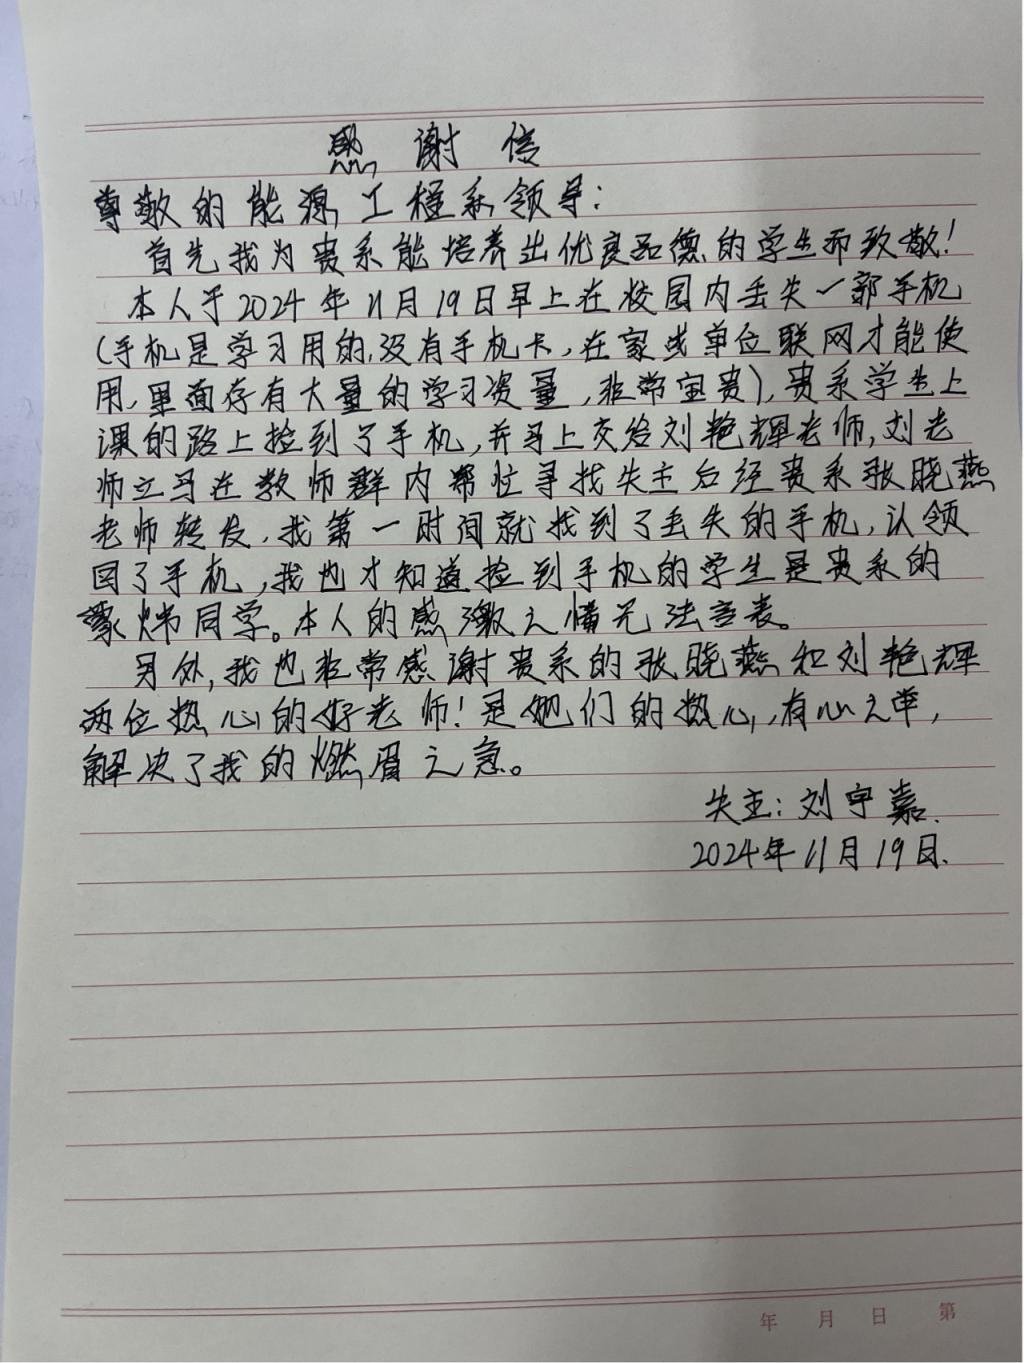 感谢信
尊敬的能源工程系领导：
首先我为贵系能培养出优良品德的学生而致敬！
本人于2024年11月19日早上在校园内丢失一部手机
（手机是学习用的，没有手机卡，在家或单位联网才能使
用，里面存有大量的学习资量，非常宝贵），贵系学生上
课的路上捡到了手机，并马上交给刘艳辉老师，刘老
师立马在教师群内帮忙寻找失主后经贵系张晓燕
老师转发，我第一时间就找到了丢失的手机，认领
回了手机，我也才知道捡到手机的学生是贵系的
蒙炜同学。本人的感激之情无法言表。
另外，我也非常感谢贵系的张晓燕和刘艳辉
两位热心的好老师！是她们的热心，有心之举，
解决了我的燃眉之急。
失主：刘宇嘉.
2024年11月19日.
年 月 日 第